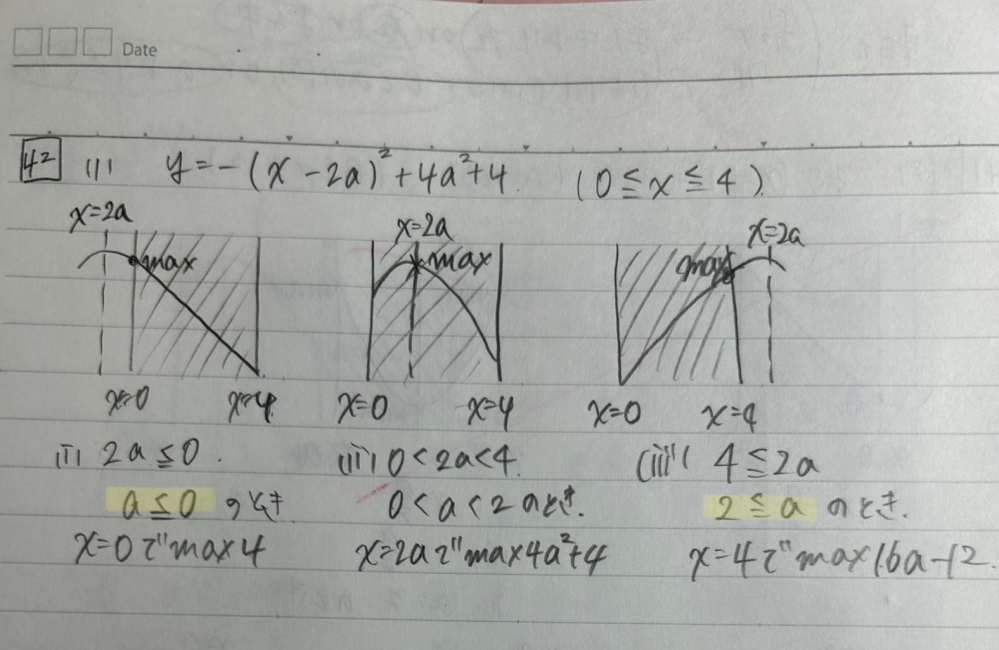 Date
42 (1) y=-(x-2a)²+4a²+4 (0≦x≦4)
x=2a x=2a x=2a
max max max
x=0 x=4 x=0 x=4 x=0 x=4
(i) 2a≦0. (ii) 0<2a<4. (iii) 4≦2a
a≦0 のとき. 0<a<2のとき. 2≦a のとき.
x=0で max 4 x=2aで max 4a²+4 x=4で max 16a-12.